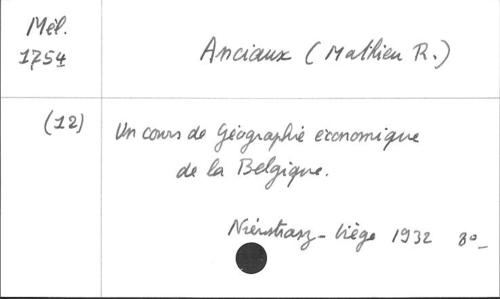 Mél.
1754
Anciaux (Mathieu R.)
(12)
Un cours de Géographie économique
de la Belgique.
Niérstrasz - Liège 1932 8º